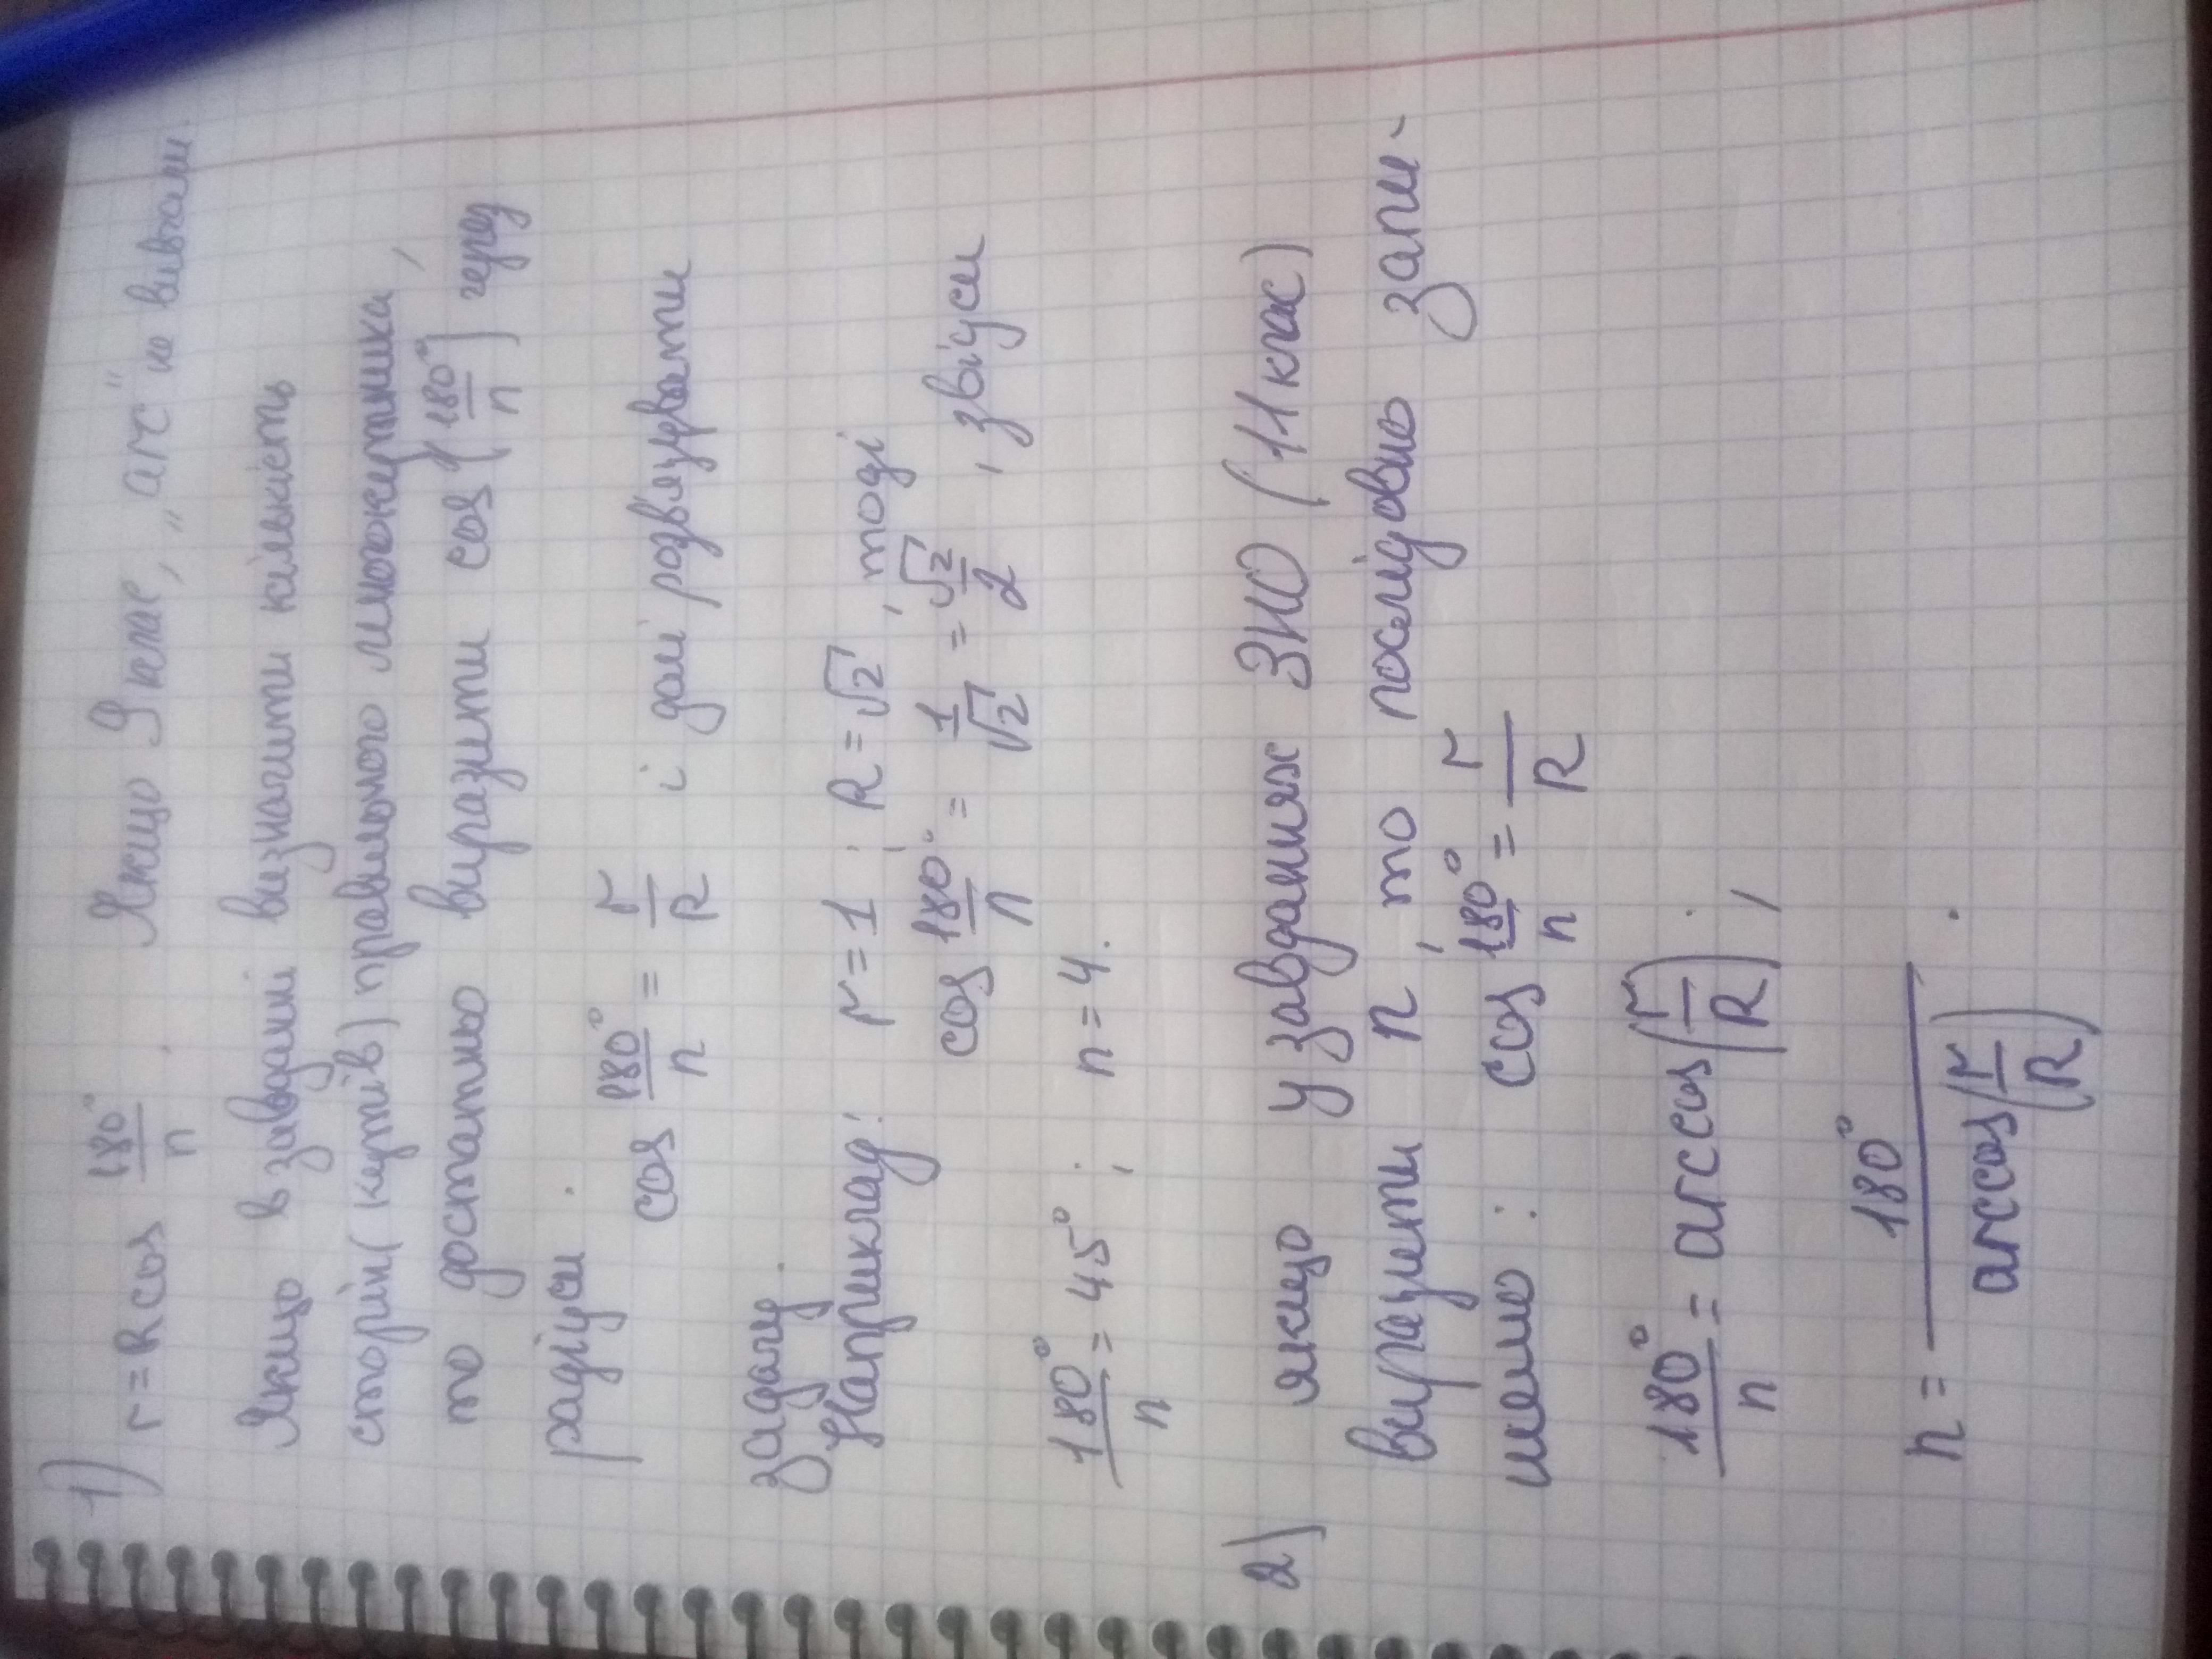 1) r = R cos 180°/n . Якщо 9 клас, „arc“ не вивчали.
Якщо в завданні визначити кількість
сторін (кутів) правильного многокутника,
то достатньо виразити cos (180°/n) через
радіуси.
cos 180°/n = r/R і далі розв'язувати
задачу.
Наприклад: r = 1; R = √2, тоді
cos 180°/n = 1/√2 = √2/2, звідси
180°/n = 45°; n = 4.
2) якщо у завданнях ЗНО (11 клас)
виразити n, то послідовно запи-
шемо: cos 180°/n = r/R
180°/n = arccos(r/R);
n = 180°/arccos(r/R).